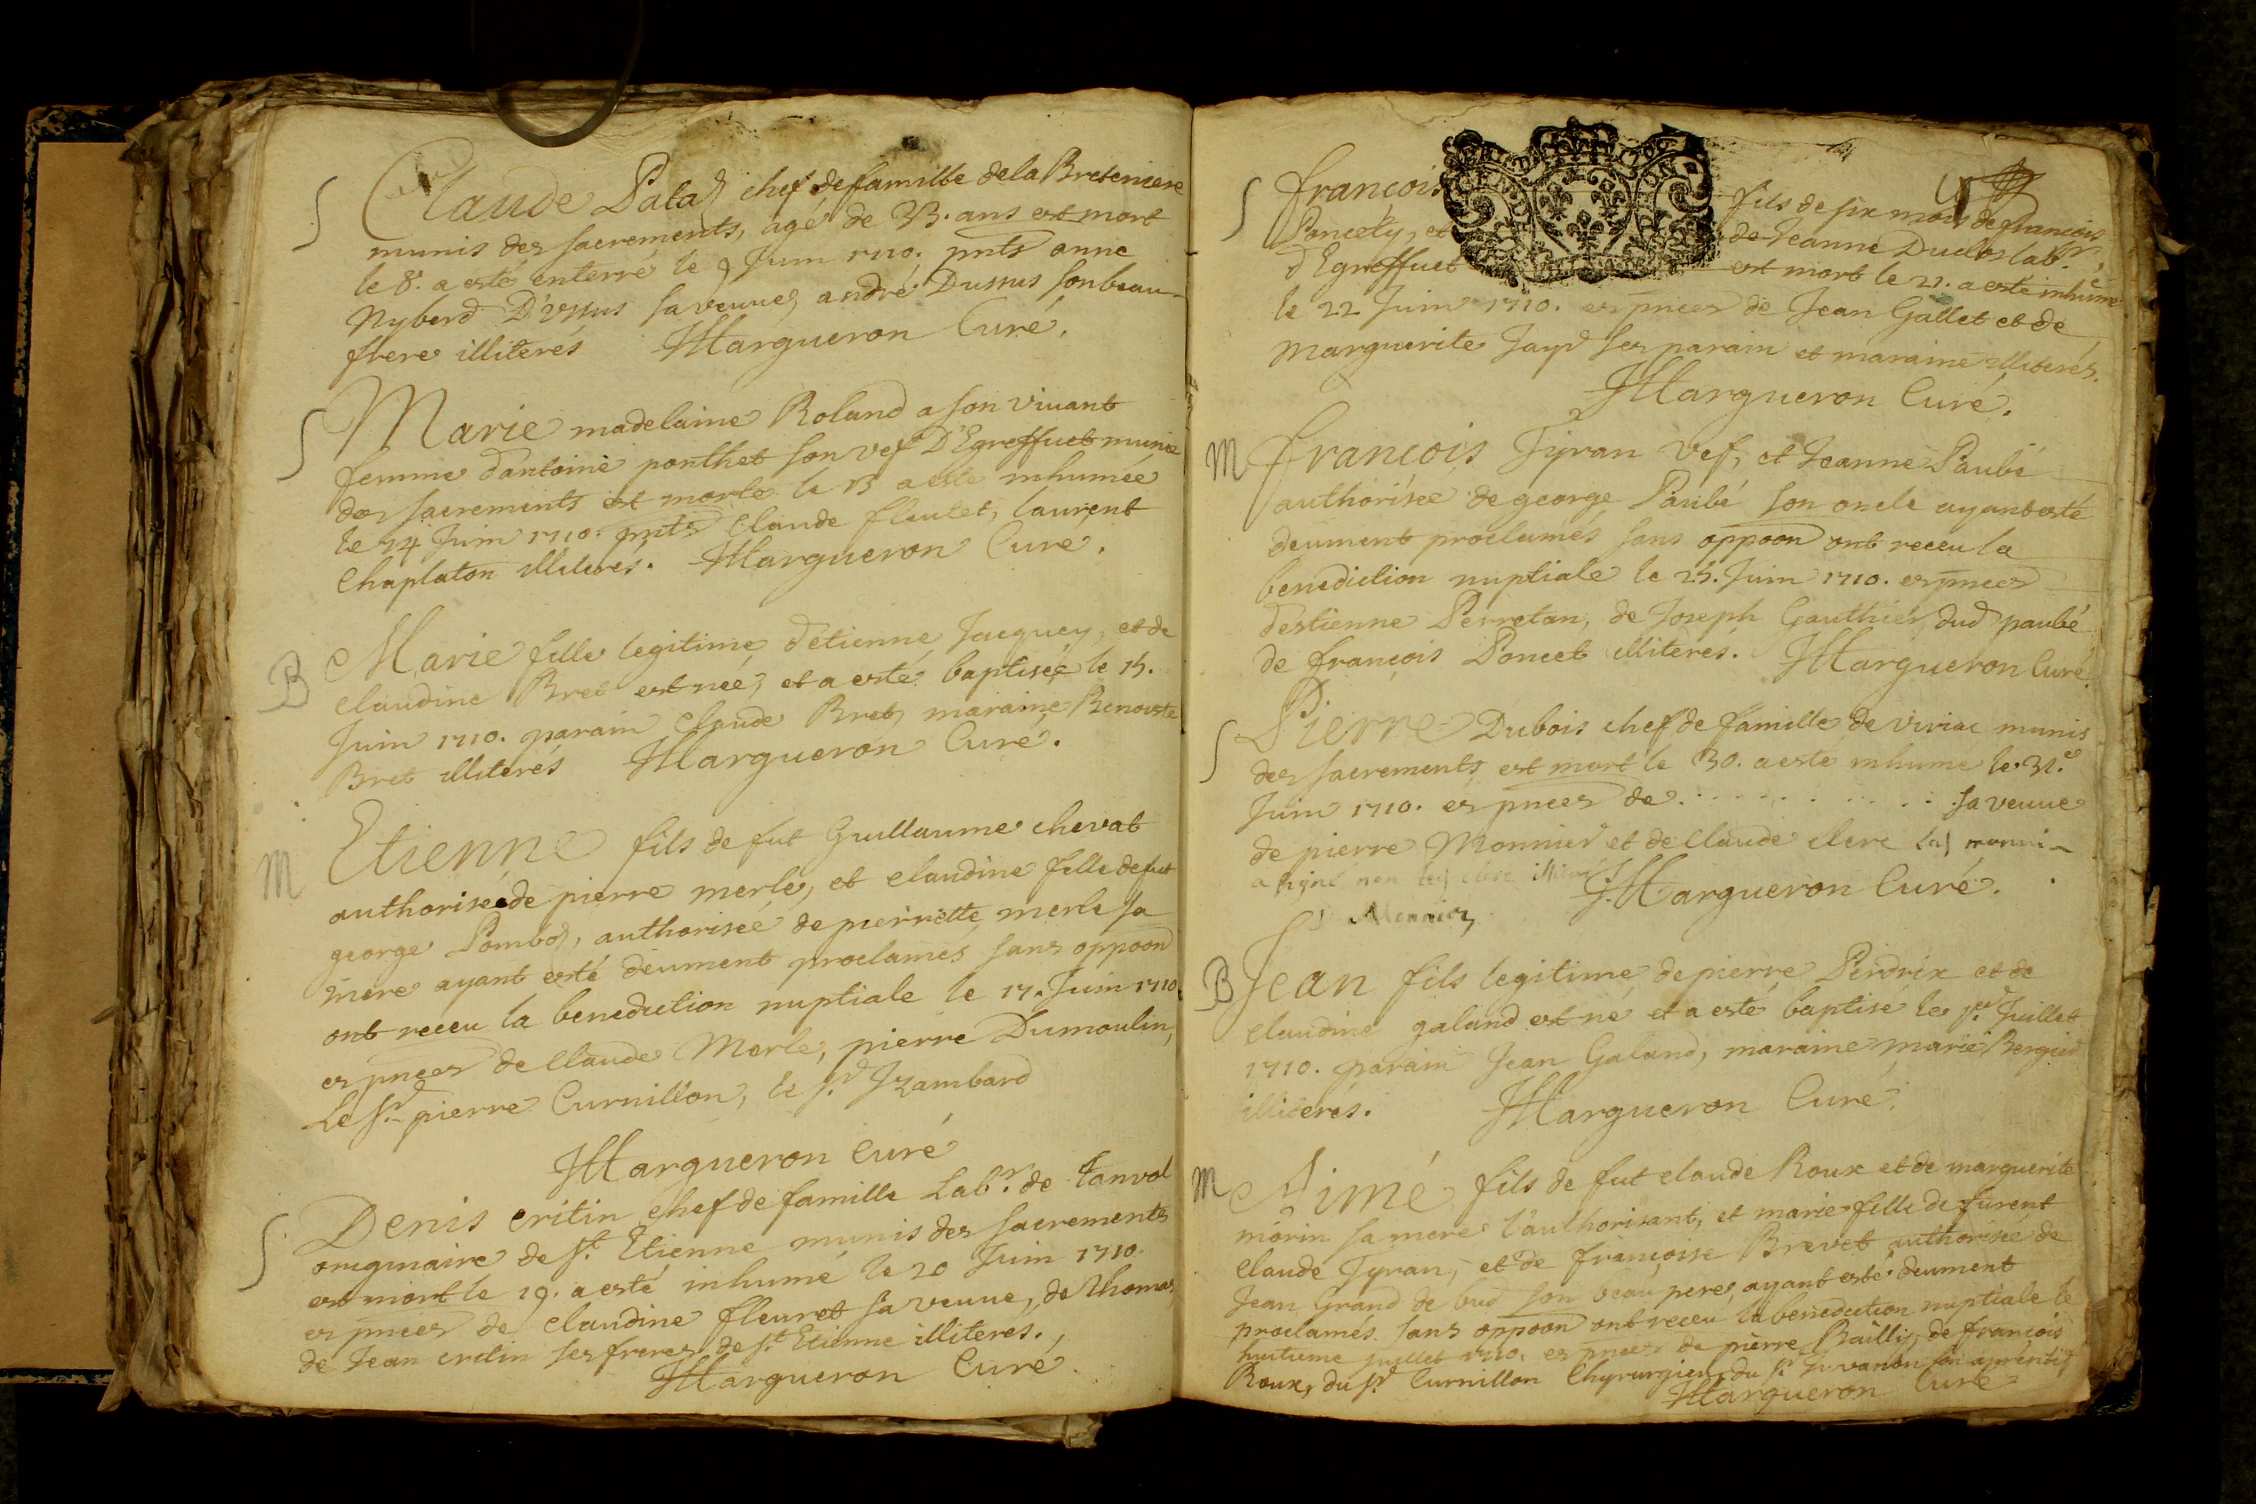 S Claude Palad chef de famille de la Breteniere
munis des sacrements, agé de 33. ans est mort
le 8. a esté enterré le 9 Juin 1710. pnts anne
Nyberd D'ussus sa veuve, andré Dussus son beau-
frere illiterés JMargueron Curé.
S Marie madelaine Roland a son vivant
femme d'antoine ponthet son vef D'Egreffuet munie
des sacrements est morte le 13 a esté inhumée
le 14 Juin 1710. pnts Claude fleutet, laurent
Chaplaton illiterés. JMargueron Curé.
B Marie fille legitime d'etienne Jacquey, et de
claudine Bret est neé, et a esté baptisée le 15.
Juin 1710. parain Claude Bret, maraine Benoiste
Bret illiterés JMargueron Curé.
M Etienne fils de fut Guillaume chevat
authorisé de pierre merle, et claudine fille de fut
george Pombd, authorisée de pierrette merle sa
mere ayant esté deument proclamés sans oppoon
ont receu la benediction nuptiale le 17. Juin 1710.
es pnces de claude Merle, pierre Dumoulin,
Le Sr. pierre Curnillon, le sr. Izambard
JMargueron curé
S Denis critin chef de famille Labr. de tanvol
originaire de st. Etienne munis des sacrements
est mort le 19. a esté inhumé le 20 Juin 1710.
es pnces de claudine fleuret sa veuve, de thomas,
de Jean critin ses freres de st. Etienne illiteres.
JMargueron Curé
S françois fils de six mois de françois
Poncety, et de Jeanne Duclos labr.
d'Egreffuet est mort le 21. a esté inhumé
le 22 Juin 1710. es pnces de Jean Gallet et de
Marguerite Jayd ses parain et maraine illiterés.
JMargueron Curé.
M françois Tyran Vef, et Jeanne Paubé
authorisée de george Paubé son oncle ayant esté
deument proclamés sans oppoon ont receu la
benediction nuptiale le 25. Juin 1710. es pnces
d'estienne Perretan, de Joseph Gauthier, dud paubé
de françois Poncet illiterés. JMargueron Curé.
S Pierre Dubois chef de famille de viriac munis
des sacrements est mort le 30. a esté inhume le 31.e
Juin 1710. es pnces de . . . . . . . . . . sa veuve
de pierre Monnier et de claude clerc led monnier
a signé non led clerc illiteré JMargueron Curé.
P Monnier
B Jean fils legitime de pierre Perdrix et de
claudine galand est né et a esté baptisé le pr. Juillet
1710. parain Jean Galand, maraine marie Bergier
illiterés. JMargueron Curé.
M Aimé fils de fut claude Roux et de marguerite
morin sa mere l'authorisant, et marie fille de furent
claude Tyran, et de françoise Brevet authorisée de
Jean Grand de bud son beau pere, ayant esté deument
proclamés sans oppoon ont receu la benediction nuptiale le
huitieme juillet 1710. es pnces de pierre Bailly, de françois
Roux, du sr Curnillon Chyrurgien, du sr son aprentif
JMargueron Curé